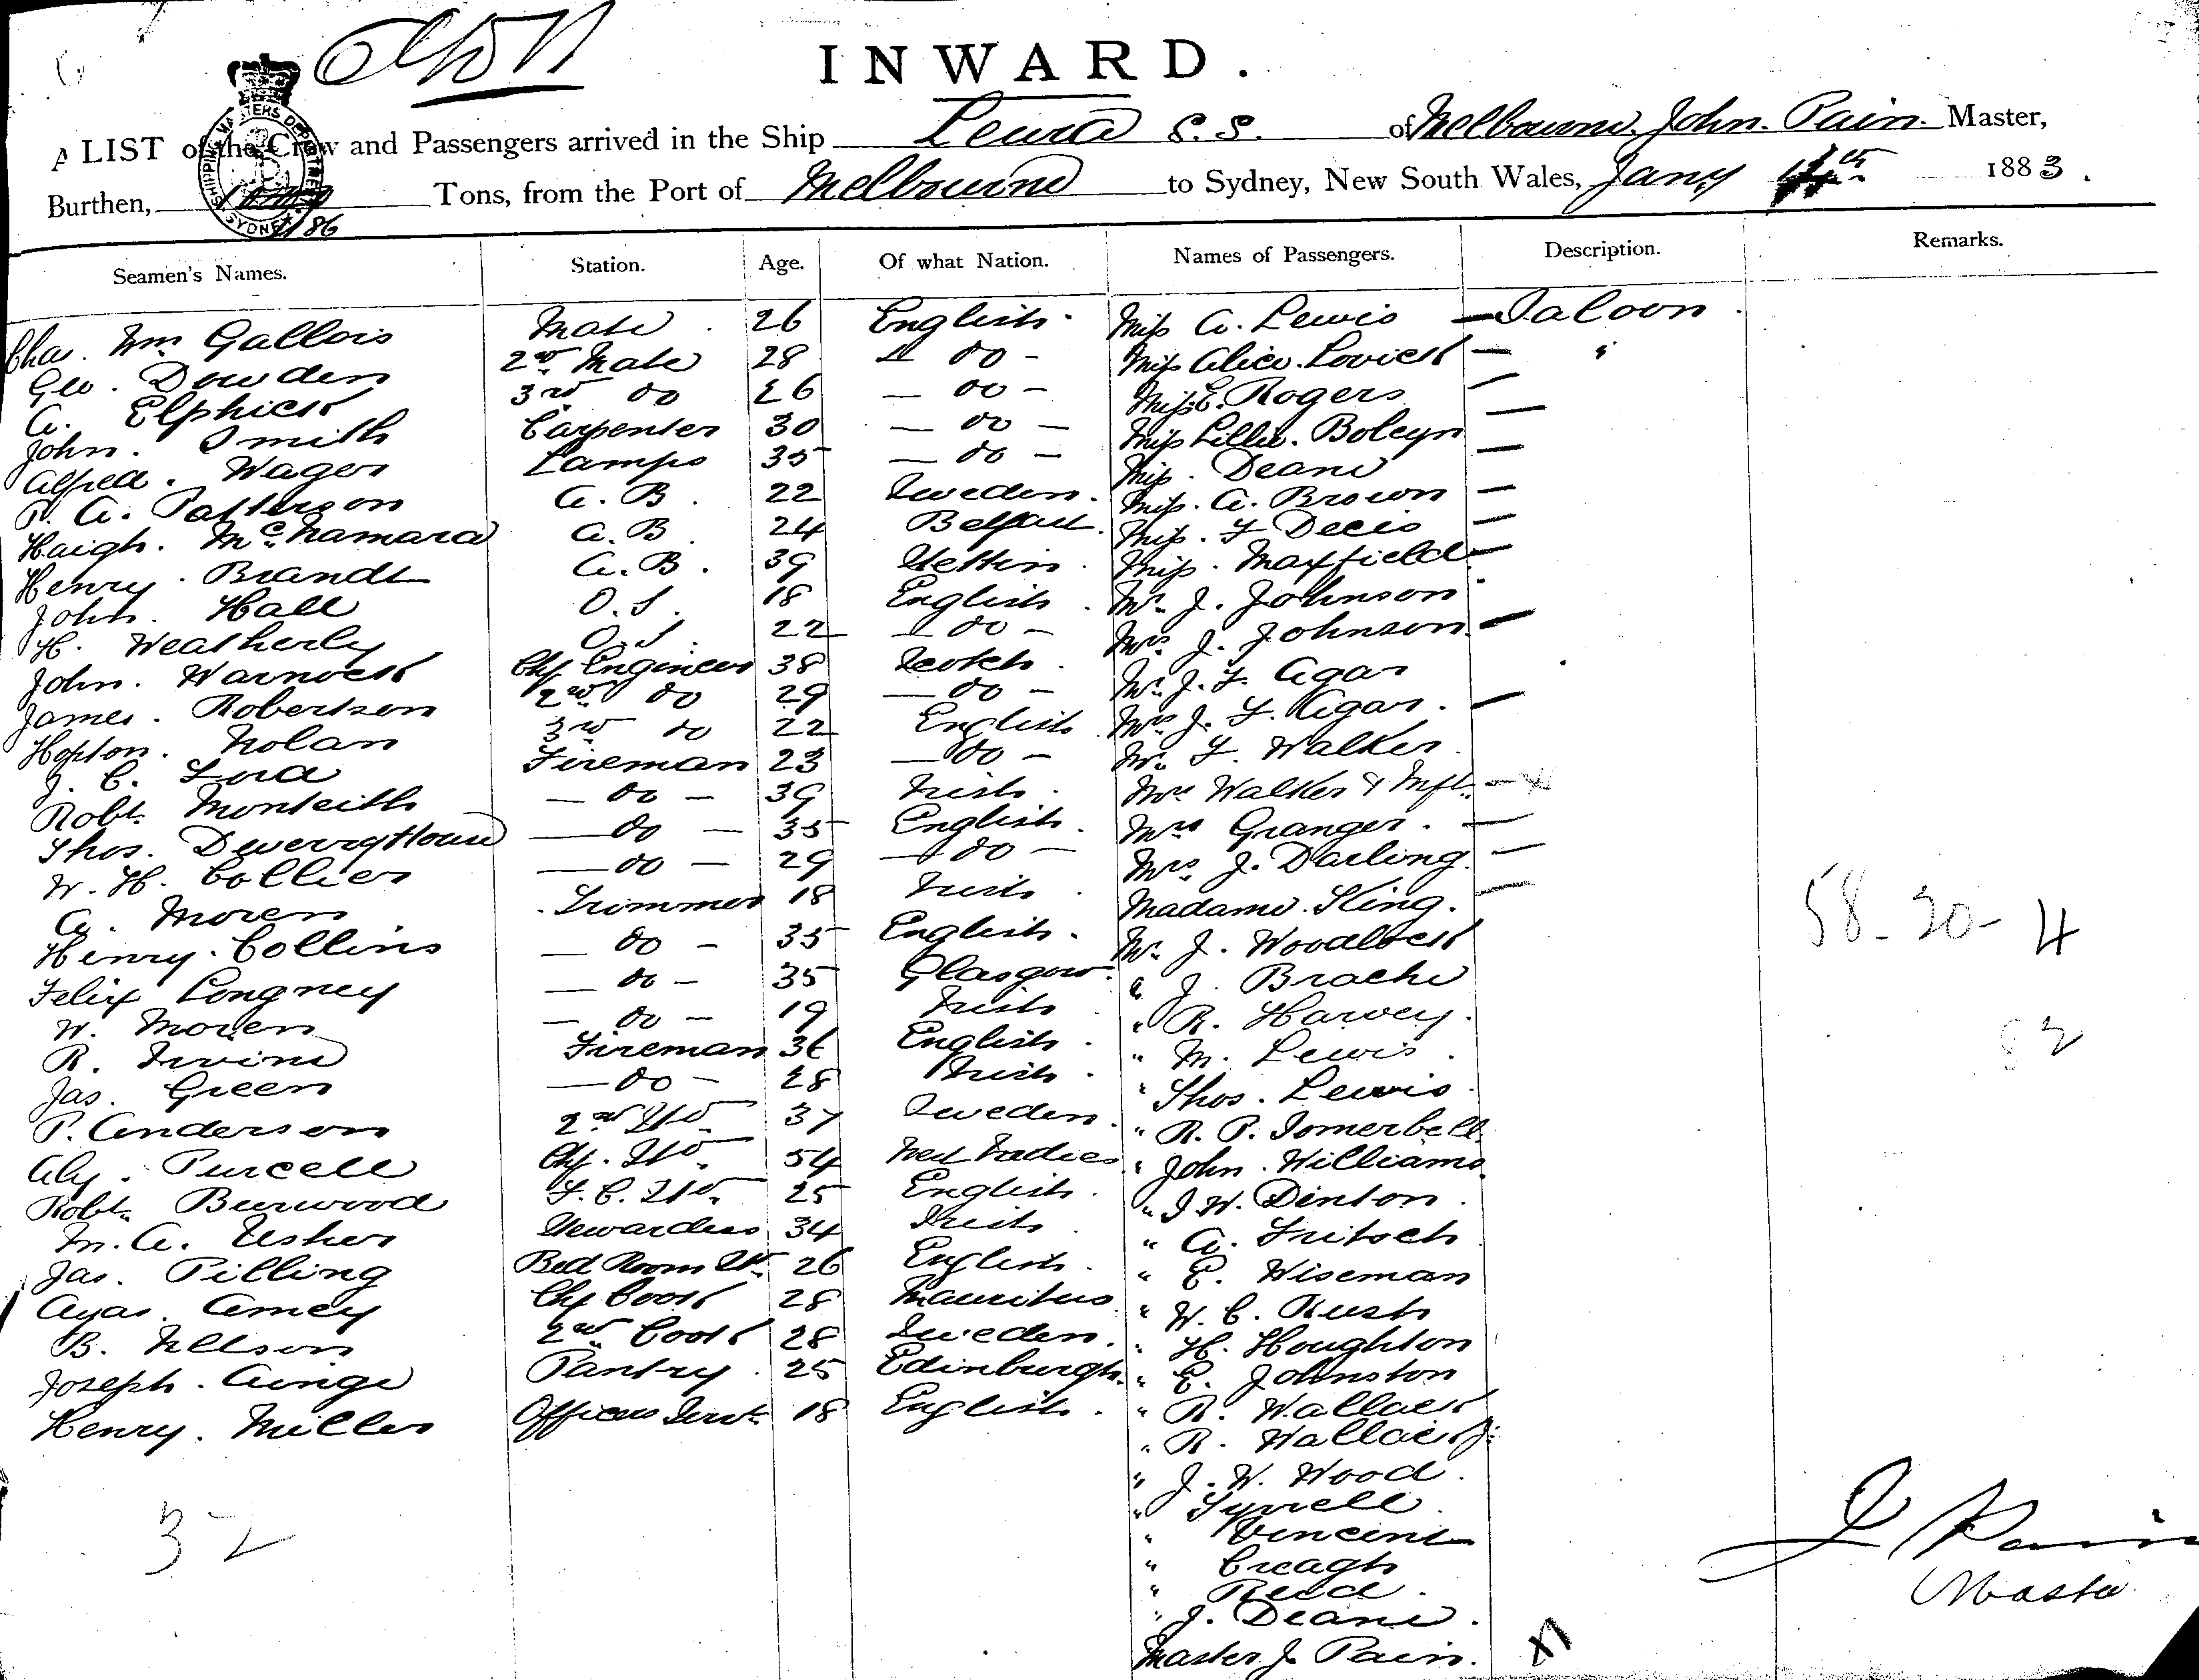 INWARD.
A LIST of the Crew and Passengers arrived in the Ship Leura S.S. of Melbourne. John. Pain. Master,
Burthen, Tons, from the Port of Melbourne to Sydney, New South Wales, Jany 1883.
Seamen's Names. Station. Age. Of what Nation. Names of Passengers. Description. Remarks.
Chas. Wm Gallois Mate. 26 English. Miss A. Lewis — Saloon
Geo. Dowden 2nd Mate 28 — do — Miss Alice. Lovick — "
A. Elphick 3rd do 26 — do — Miss E. Rogers —
John. Smith Carpenter 30 — do — Miss Lillie. Boleyn —
Alfred. Wager Lamps 35 — do — Miss. Deane —
P. A. Patterson A.B. 22 Sweden. Miss. A. Brown —
Haigh. McNamara A.B. 24 Belfast. Miss. F Decis —
Henry. Brandt A.B. 39 Stettin. Miss. Maxfield —
John. Hall O.S. 18 English. Mr. J. Johnson
H. Weatherly O.S. 22 — do — Mrs J. Johnson. —
John. Warnock Chf Engineer 38 Scotch. Mr. J. F. Agar
James. Robertson 2nd do 29 — do — Mrs J. F. Agar. —
Hopton. Nolan 3rd do 22 English Mr. F. Walker.
J. C. Ford Fireman 23 — do — Mrs Walker & Inft. — x
Robt. Monteith — do — 39 Irish. Mrs Granger. —
Thos. Deverry House — do — 35 English. Mrs. J. Darling. —
W. H. Collier — do — 29 — do — Madame. King. —
A. Moren Trimmer 18 Irish. Mr. J. Woodlock
Henry. Collins — do — 35 English. " J. Brache
Felix Longney — do — 35 Glasgow. " R. Harvey.
W. Moren — do — 19 Irish. " M. Lewis.
R. Irvine Fireman 36 English. " Thos. Lewis.
Jas. Green — do — 28 Irish. " R. P. Somerbell.
P. Anderson 2nd Std. 37 Sweden. " John. Williams.
Aly. Purcell Chf. Std. 54 West Indies " J. W. Dinton.
Robt. Burwood F.C. Std. 25 English. " A. Fritsch
M. A. Usher Stewardess 34 Irish " E. Wiseman
Jas. Pilling Bed Room St. 26 English. " W. C. Rush
Ayas. Amey Chf Cook 28 Mauritius " H. Houghton
B. Nelson 2nd Cook 28 Sweden. " E. Johnston
Joseph. Ainge Pantry. 25 Edinburgh. " R. Wallack
Henry. Miller Officers Servt. 18 English. " R. Wallack Jr.
" J. W. Wood.
" Tyrrell.
" Vincent
" Creagh
" Reed.
" J. Deane.
Master J. Pain.
58-20-4
32
J Pain
Master